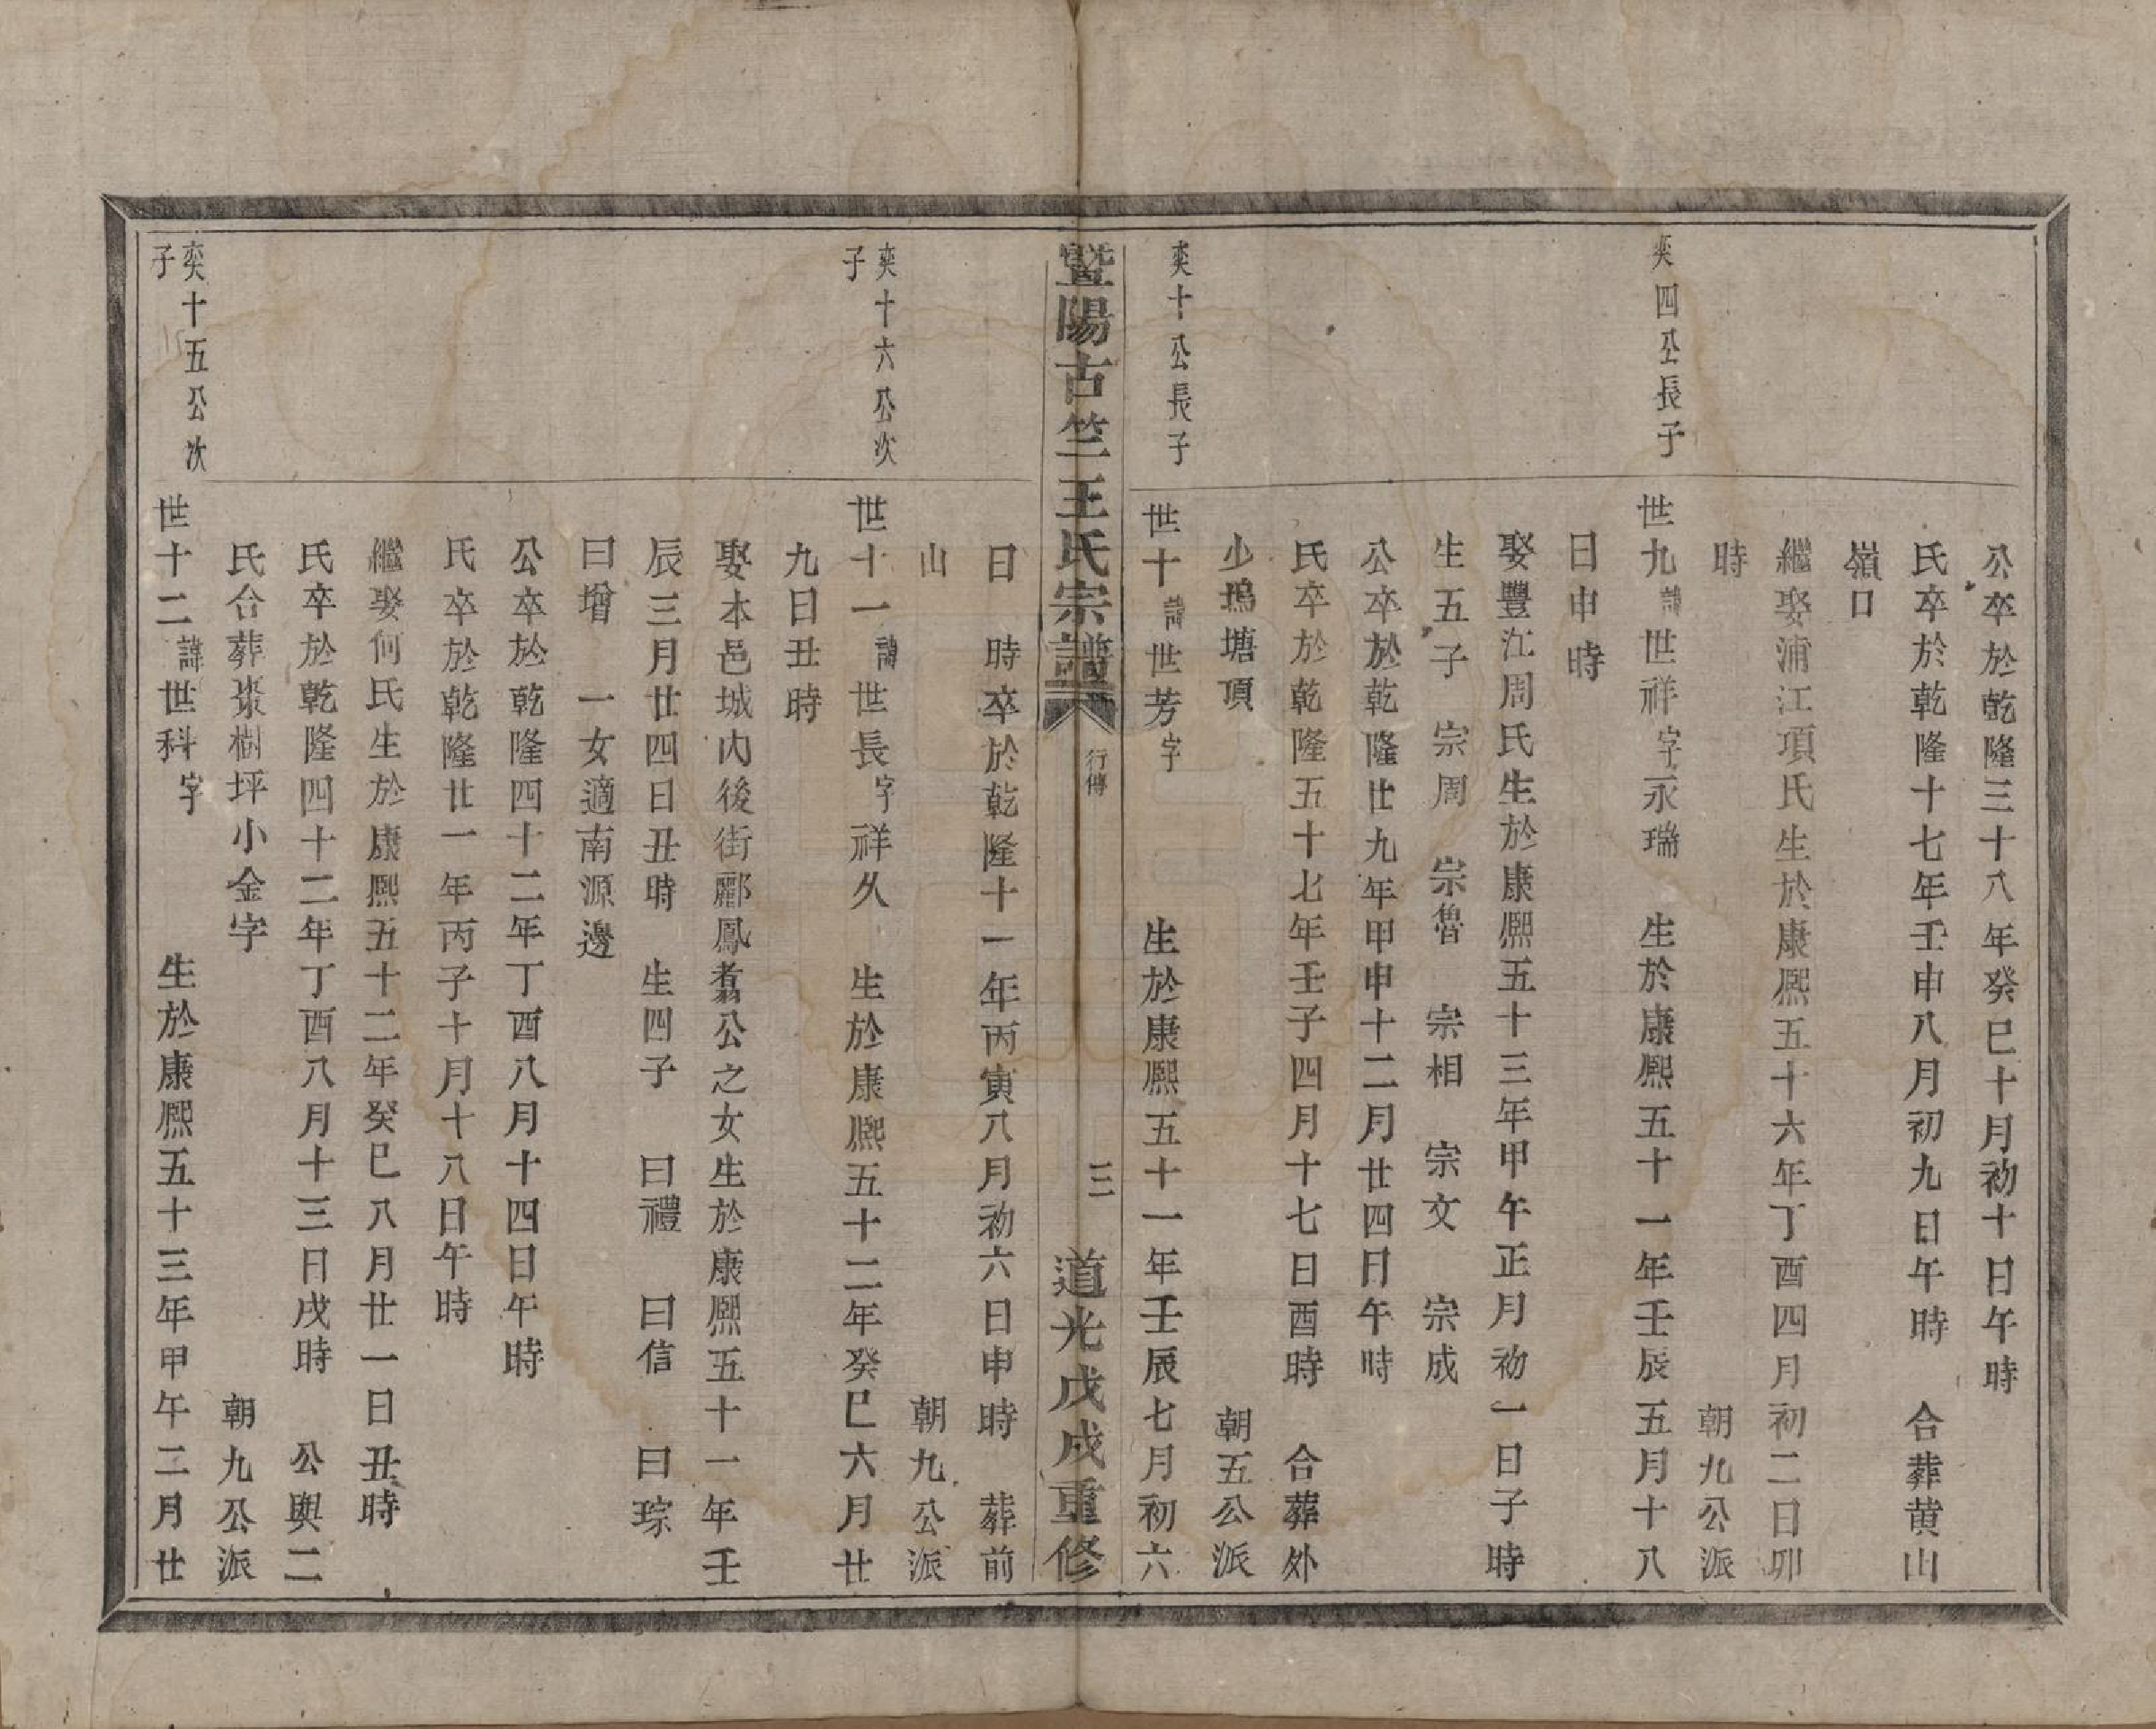 公卒於乾隆三十八年癸巳十月初十日午時
氏卒於乾隆十七年壬申八月初九日午時　合葬黃山
嶺口
繼娶浦江項氏生於康熙五十六年丁酉四月初二日卯
時　朝九公派
奭四公長子
世九諱世祥字永瑞　生於康熙五十一年壬辰五月十八
日申時
娶豐江周氏生於康熙五十三年甲午正月初一日子時
生五子　宗周　宗魯　宗相　宗文　宗成
公卒於乾隆廿九年甲申十二月廿四日午時
氏卒於乾隆五十七年壬子四月十七日酉時　合葬外
少塢塘頂　朝五公派
奭十公長子
世十諱世芳字　生於康熙五十一年壬辰七月初六
暨陽古竺王氏宗譜　行傳　三　道光戊戌重修
日　時卒於乾隆十一年丙寅八月初六日申時　葬前
山　朝九公派
奭十六公次子
世十一諱世長字祥久　生於康熙五十二年癸巳六月廿
九日丑時
娶本邑城內後街酈鳳翥公之女生於康熙五十一年壬
辰三月廿四日丑時　生四子　曰禮　曰信　曰琮
曰增　一女適南源邊
公卒於乾隆四十二年丁酉八月十四日午時
氏卒於乾隆廿一年丙子十月十八日午時
繼娶何氏生於康熙五十二年癸巳八月廿一日丑時
氏卒於乾隆四十二年丁酉八月十三日戌時　公與二
氏合葬棗樹坪小金字　朝九公派
奭十五公次子
世十二諱世科字　生於康熙五十三年甲午二月廿